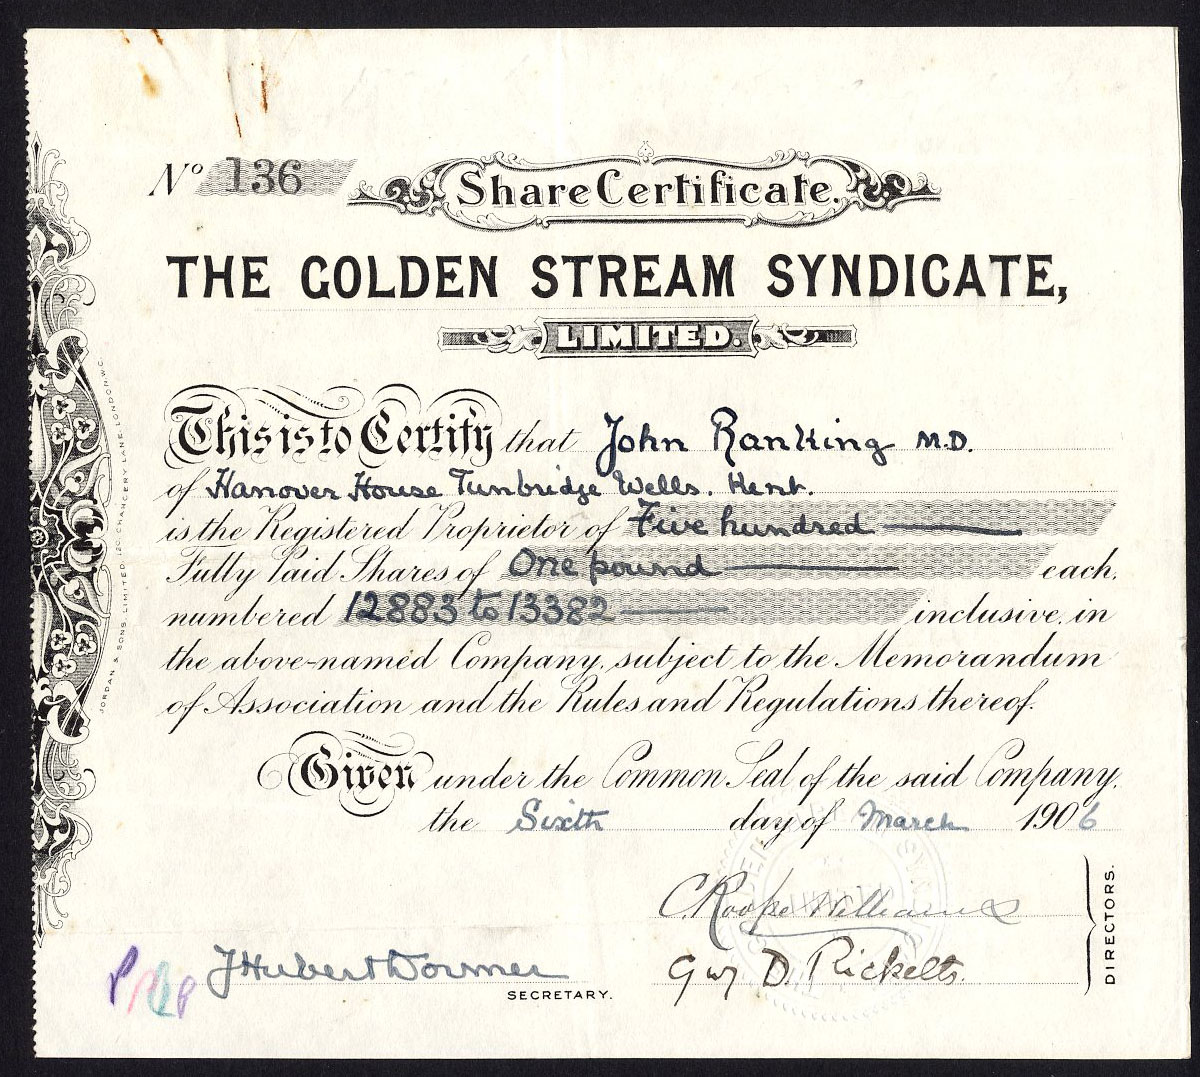 No 136
Share Certificate.
THE GOLDEN STREAM SYNDICATE,
LIMITED.
This is to Certify that John Ranking M.D.
of Hanover House Tunbridge Wells. Kent.
is the Registered Proprietor of Five hundred
Fully Paid Shares of One pound each,
numbered 12883 to 13382 inclusive, in
the above-named Company, subject to the Memorandum
of Association and the Rules and Regulations thereof.
Given under the Common Seal of the said Company,
the Sixth day of March 1906
C. Roope Williams
J Hubert Dormer
Guy D. Ricketts.
SECRETARY.
DIRECTORS.
JORDAN & SONS, LIMITED, 120, CHANCERY LANE, LONDON, W.C.